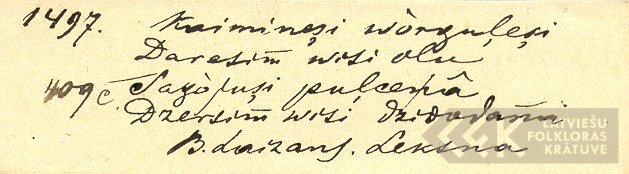 1497. Kaimiņeşi wòrguļeşi
Daresim̃ wisi olu
409 c. Sagòjuşi puļceņâ
Dzersim̃ wisi dzidodami
B. Laizans. Leksna
LATVIEŠU
FOLKLORAS
KRĀTUVE